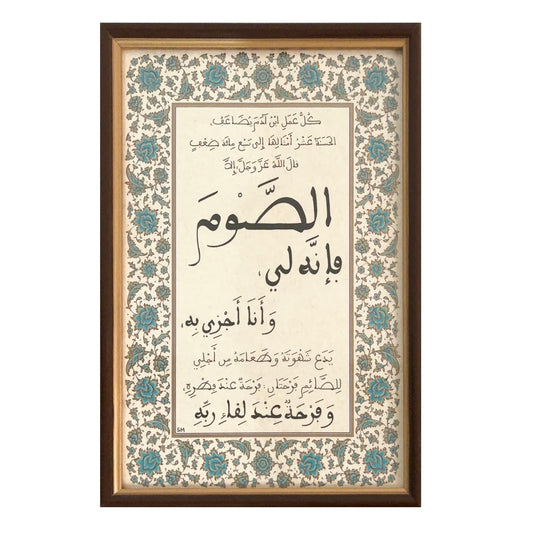 كُلُّ عَمَلِ ابْنِ آدَمَ يُضَاعَفُ،
الحَسَنَةُ عَشْرُ أَمْثَالِهَا إِلَى سَبْعِ مِائَة ضِعْفٍ
قالَ اللَّهُ عَزَّ وَجَلَّ: إِلَّا
الصَّوْمَ
فَإِنَّهُ لِي،
وَأَنَا أَجْزِي بِهِ،
يَدَعُ شَهْوَتَهُ وَطَعَامَهُ مِن أَجْلِي
لِلصَّائِمِ فَرْحَتَانِ: فَرْحَةٌ عِنْدَ فِطْرِهِ،
وَفَرْحَةٌ عِنْدَ لِقَاءِ رَبِّهِ
SM